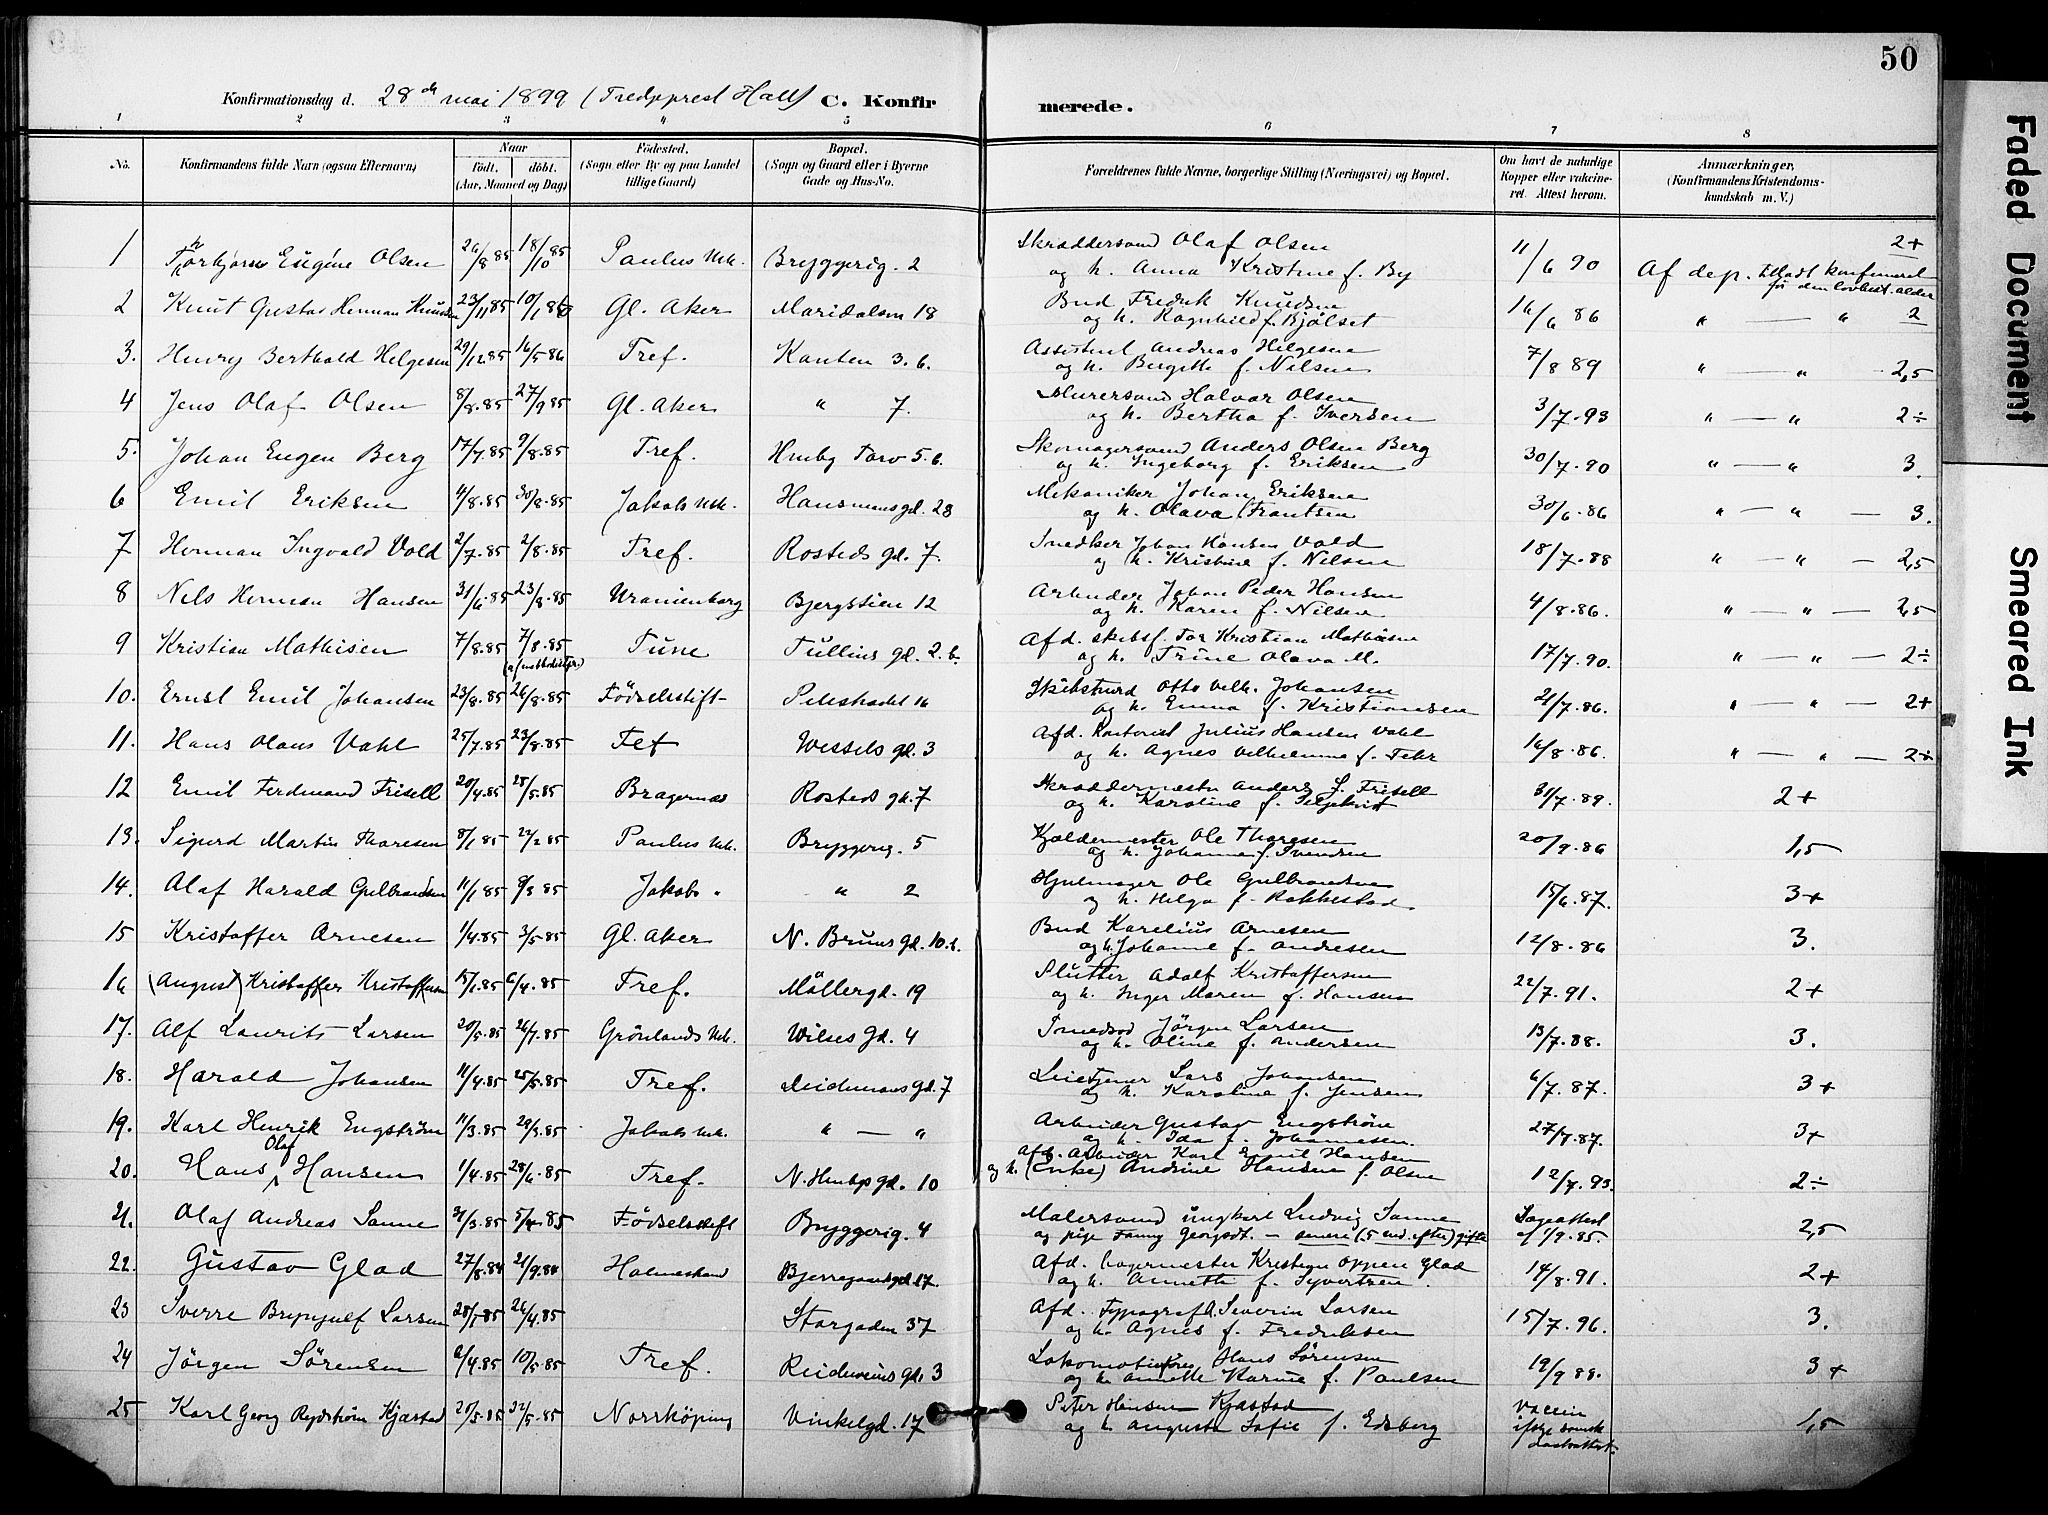 50
Konfirmationsdag d. 28de mai 1899 (Tredjeprest Hall) C. Konfirmerede.
1 2 3 4 5 6 7 8
No. Konfirmandens fulde Navn (ogsaa Efternavn) Naar födt. döbt. (Aar, Maaned og Dag) Födested. (Sogn eller By og paa Landet tillige Gaard) Bopæl. (Sogn og Gaard eller i Byerne Gade og Hus-No. Forældrenes fulde Navne, borgerlige Stilling (Næringsvei) og Bopæl. Om havt de naturlige Kopper eller vakcineret. Attest herom. Anmærkninger, (Konfirmandens Kristendomskundskab m. V.)
1 Thorbjørn Eugéne Olsen 26/8 85 18/10 85 Paulus Mk. Bryggerig. 2 Skræddersvend Olaf Olsen 11/6 90 2+
og h. Anna Kristine f. By Af dep. tilladt konfirmeret før den lovbest. alder
2 Knut Gustav Herman Knudsen 23/11 85 10/1 86 Gl. Aker Maridalsvn 18 Bud Fredrik Knudsen 16/6 86 " — " 2
og h. Ragnhild f. Bjölset
3. Henry Berthold Helgesen 29/12.85 16/5 86 Tref. Kanten 3.b. Assistent Andreas Helgesen 7/8 89 " — " 2,5
og h. Birgitte f. Nilsen
4 Jens Olaf Olsen 8/8.85 27/9 85 Gl. Aker " 7. Murersvend Halvar Olsen 3/7.93 " — " 2÷
og h. Bertha f. Iversen
5. Johan Eugen Berg 17/7.85 9/8.85 Tref. Hmbg Torv 5.b. Skomagersvend Anders Olsen Berg 30/7.90 " — " 3.
og h. Ingeborg f. Eriksen
6 Emil Eriksen 4/8.85 30/8.85 Jakobs Mk. Hausmansgd. 28 Mekaniker Johan Eriksen 30/6.86 " — " — 3.
og h. Olava Frantsen
7 Herman Ingvald Vold 2/7.85 2/8.85 Tref. Rosteds gd. 7. Snedker Johan Hansen Vold 18/7.88 " — " — 2,5
og h. Kristine f. Nilsen
8 Nels Herman Hansen 31/6.85 23/8.85 Uranienborg Bjergstien 12 Arbeider Johan Peder Hansen 4/8.86. " — " — 2,5
og h. Karen f. Nilsen
9 Kristian Mathisen 7/8.85 7/8.85 Tune Tullins gd. 2.b. Afd. skibsf. Tor Kristian Mathisen 17/7.90. " — " — 2÷
og h. Trine Olava M.
10. Ernst Emil Johansen 23/8.85 26/8.85 Födselsstift Pilestrædet 16 Skibstmd Otto Vilh. Johansen 21/7.86. " — " — 2+
og h. Emma f. Kristiansen
11. Hans Olaus Vahl 25/7.85 23/8.85 Tef Wessels gd. 3 Afd. Kontorist Julius Hansen Vahl 16/8.86. " — " — 2÷
og h. Agnes Vilhelmine f. Fehr
12 Emil Ferdinand Frisell 20/4.85 25/5.85 Bragernæs Rosteds gd. 7 Skræddermester Anders J. Frisell 31/7.89. 2+
og h. Karoline f.
13. Sigurd Martin Thoresen 8/1 85 22/2 85 Paulus Mk. Bryggerig. 5 Kjældermester Ole Thoresen 20/9.86 1,5
og h. Johanne f. Svendsen
14. Olaf Harald Gulbrandsen 11/1 85 8/3 85 Jakobs " " 2 Hjulmager Ole Gulbrandsen 15/6.87. 3+
og h. Helga f. Rakkestad
15 Kristoffer Arnesen 1/4.85 3/5 85 Gl. Aker N. Bruns gd. 10.b. Bud Karelius Arnesen 12/8.86 3.
og h. Johanne f. Andresen
16 (August) Kristoffer Kristoffersen 15/1.85 6/4.85 Tref. Möllergd. 19 Slutter Adolf Kristoffersen 22/7.91. 2+
og h. Inger Maren f. Hansen
17. Alf Laurits Larsen 20/5.85 26/7.85 Grönlands Mk. Wilses Gd. 4 Smedsvd Jörgen Larsen 13/7.88. 3.
og h. Oline f. Andersen
18. Harald Johansen 11/4.85 25/5.85 Tref. Leidemans Gd. 7 Leietjener Lars Johansen 6/7.87. 3+
og h. Karoline f. Jensen
19. Karl Henrik Engström 11/3.85 29/3.85 Jakobs Mk. " — " Arbeider Gustav Engström 27/7.87. 3+
og h. Ida f. Johannesen.
20. Hans Olaf Hansen 1/4.85 28/6.85 Tref. N. Hmbgs gd. 10 Afd. Arbeider Karl Emil Hansen 12/7.93. 2÷
og h. (Enke) Andrine Hansen f. Olsen
21. Olaf Andreas Sanne 31/3.85 5/4.85 Födselsstift Bryggerig. 4 Malersvend ungkarl Ludvig Sanne Lægeattest af 1/9.85. 2,5
og pige Fanny Georgsdt. — senere (.5 md. efter) gifte
22. Gustav Glad 27/8.84 21/9.84 Holmestrand Bjerregaardsgd. 17. Afd. Bagermester Kristian Oppen Glad 14/8.91. 2+
og h. Annette f. Syvertsen.
23 Sverre Brynjulf Larsen 28/1 85 26/4.85 Storgaden 37 Afd. Typograf A. Severin Larsen 15/7.96. 3.
og h. Agnes f. Fredriksen
24 Jörgen Sörensen 6/4.85 10/5.85 Tref. Gd. 3 Lokomotivförer Hans Sörensen 19/9 88. 3+
og h. Annette Karine f. Paulsen
25 Karl Georg Rydström Kjæstad 20/5.85 22/5.85 Norrköping Vinkelgd. 17 Peter Hansen Kjæstad Vaccin ifølge svensk 1,5
og h. Augusta Sofie f. Edsberg
Faded Document
Smeared Ink